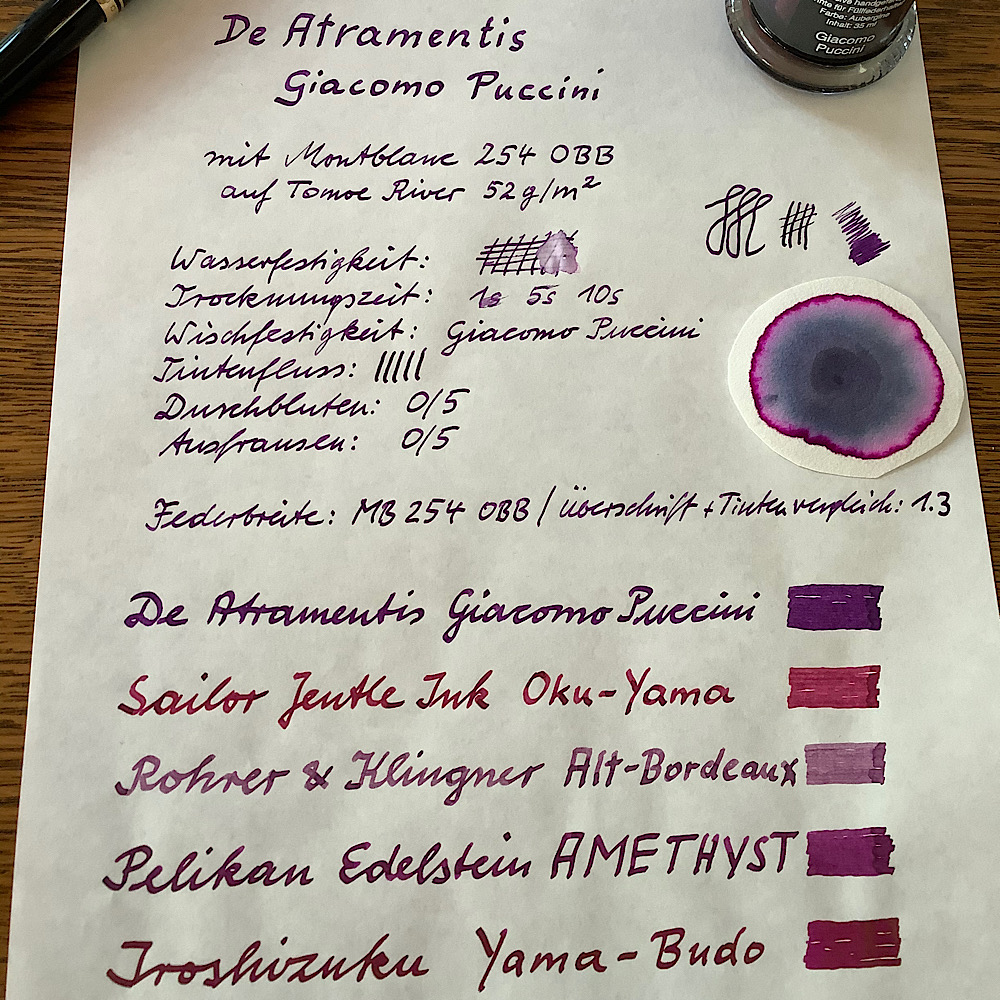 De Atramentis
Giacomo Puccini
Farbe: Aubergine
Inhalt: 35 ml
Giacomo
Puccini
mit Montblanc 254 OBB
auf Tomoe River 52g/m²
Wasserfestigkeit:
Trocknungszeit: 1s 5s 10s
Wischfestigkeit: Giacomo Puccini
Tintenfluss:
Durchbluten: 0/5
Ausfransen: 0/5
Federbreite: MB 254 OBB / Überschrift + Tintenvergleich: 1.3
De Atramentis Giacomo Puccini
Sailor Jentle Ink Oku-Yama
Rohrer & Klingner Alt-Bordeaux
Pelikan Edelstein AMETHYST
Iroshizuku Yama-Budo